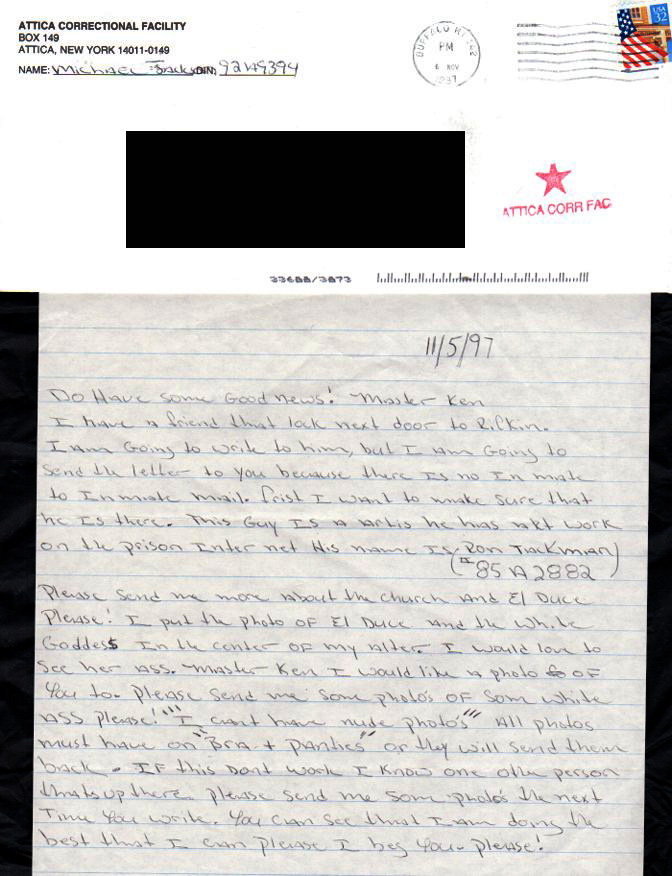 ATTICA CORRECTIONAL FACILITY
BOX 149
ATTICA, NEW YORK 14011-0149
NAME: Michael Jackson DIN: 92A9394
BUFFALO NY 142
PM
6 NOV
1997
USA
32
ATTICA CORR FAC
33688/3873
11/5/97
Do Have some Good news! Master Ken
I have a friend that lock next door to Rifkin.
I am Going to write to him, but I am Going to
send the letter to you because there Is no In mate
to Inmate mail. frist I want to make sure that
he Is there. This Guy Is a artis he has Art work
on the prison Inter net His name Is (Ron Jackman)
85 A 2882
Please send me more about the church And El Duce
Please! I put the photo OF El Duce and the white
Goddess In the center of my alter. I would love to
see her ass. Master Ken I would like a photo OF
You to. Please send me some photo's OF som white
ASS please! "I can't have nude photo's" All photos
must have on "Bra + panties" or they will send them
back. IF this Dont work I Know one othe person
thats up there. please send me some photo's the next
Time You write. You can see that I am doing the
best that I can please I beg You. please!